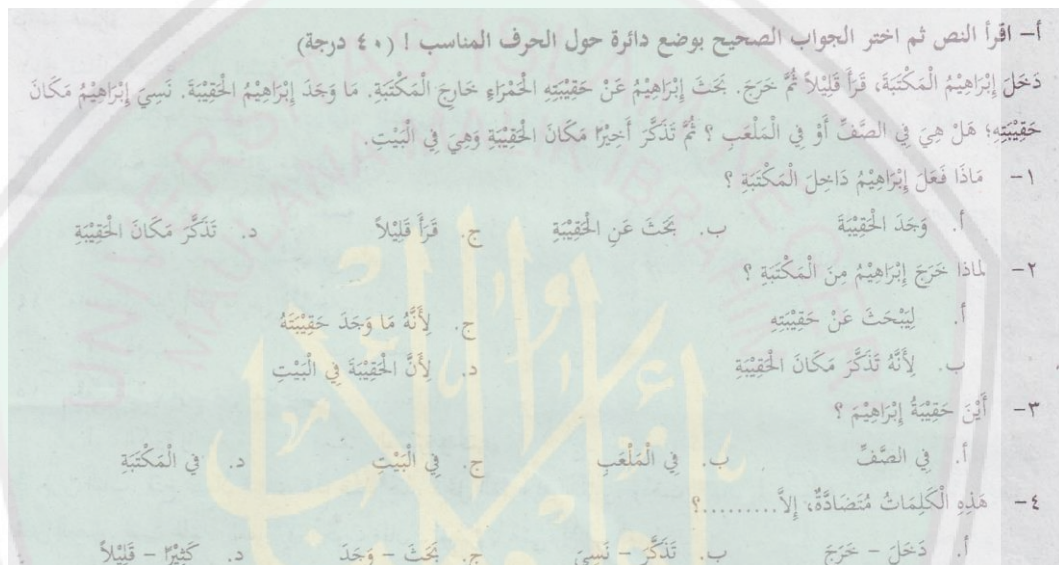 أ- اقرأ النص ثم اختر الجواب الصحيح بوضع دائرة حول الحرف المناسب ! (٤٠ درجة)
دَخَلَ إِبْرَاهِيْمُ الْمَكْتَبَةَ، قَرَأَ قَلِيْلاً ثُمَّ خَرَجَ. بَحَثَ إِبْرَاهِيْمُ عَنْ حَقِيْبَتِهِ الْحَمْرَاءِ خَارِجَ الْمَكْتَبَةِ. مَا وَجَدَ إِبْرَاهِيْمُ الْحَقِيْبَةَ. نَسِيَ إِبْرَاهِيْمُ مَكَانَ
حَقِيْبَتِهِ؛ هَلْ هِيَ فِي الصَّفِّ أَوْ فِي الْمَلْعَبِ ؟ ثُمَّ تَذَكَّرَ أَخِيْرًا مَكَانَ الْحَقِيْبَةِ وَهِيَ فِي الْبَيْتِ.
١- مَاذَا فَعَلَ إِبْرَاهِيْمُ دَاخِلَ الْمَكْتَبَةِ ؟
أ. وَجَدَ الْحَقِيْبَةَ ب. بَحَثَ عَنِ الْحَقِيْبَةِ ج. قَرَأَ قَلِيْلاً د. تَذَكَّرَ مَكَانَ الْحَقِيْبَةِ
٢- لماذا خَرَجَ إِبْرَاهِيْمُ مِنَ الْمَكْتَبَةِ ؟
أ. لِيَبْحَثَ عَنْ حَقِيْبَتِهِ ج. لِأَنَّهُ مَا وَجَدَ حَقِيْبَتَهُ
ب. لِأَنَّهُ تَذَكَّرَ مَكَانَ الْحَقِيْبَةِ د. لِأَنَّ الْحَقِيْبَةَ فِي الْبَيْتِ
٣- أَيْنَ حَقِيْبَةُ إِبْرَاهِيْمَ ؟
أ. فِي الصَّفِّ ب. فِي الْمَلْعَبِ ج. فِي الْبَيْتِ د. فِي الْمَكْتَبَةِ
٤- هَذِهِ الْكَلِمَاتُ مُتَضَادَّةٌ، إِلاَّ.........؟
أ. دَخَلَ - خَرَجَ ب. تَذَكَّرَ - نَسِيَ ج. بَحَثَ - وَجَدَ د. كَثِيْرٌ - قَلِيْلاً